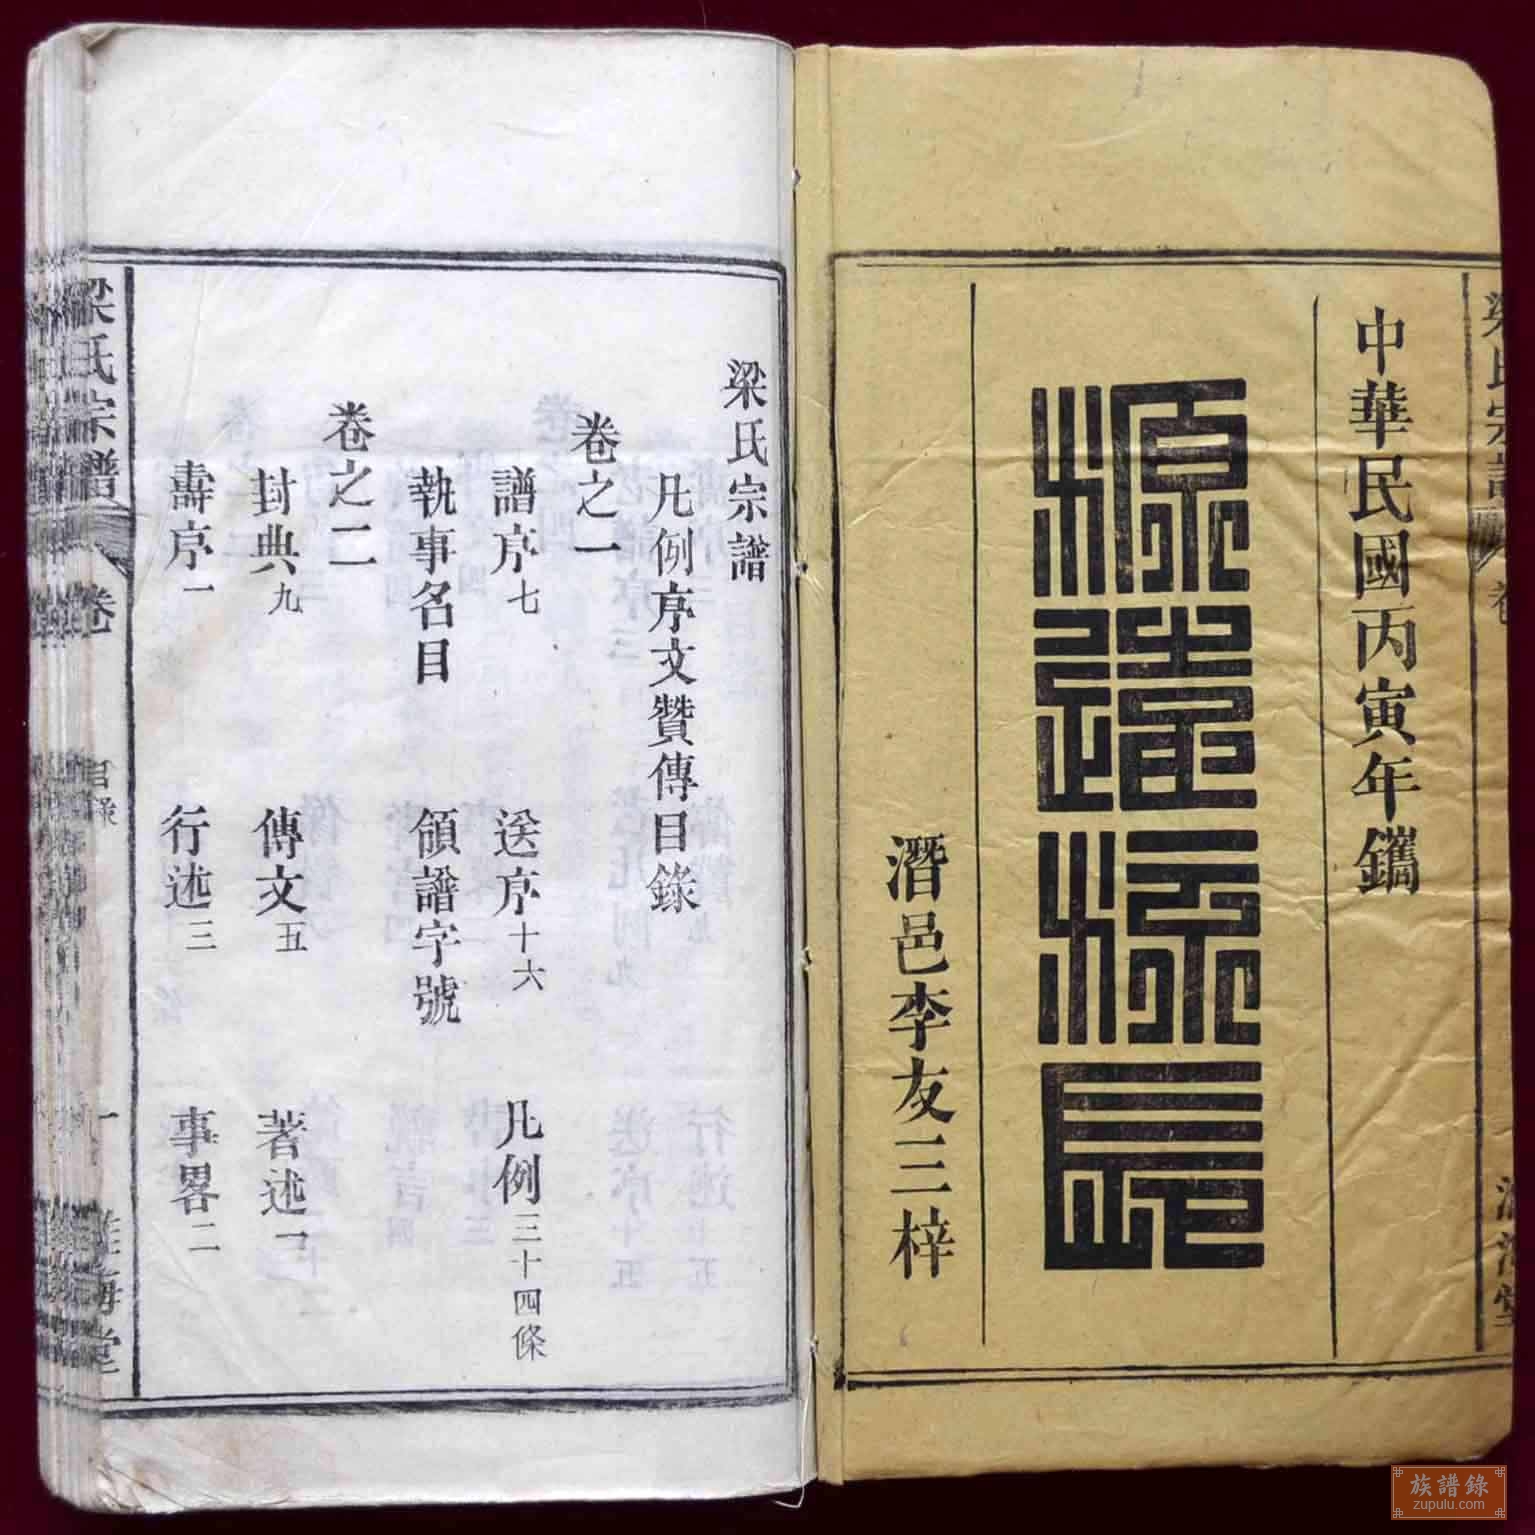 中華民國丙寅年鐫
源遠流長
潛邑李友三梓
梁氏宗譜
凡例序文贊傳目錄
卷之一
譜序七 送序十六 凡例三十四條
執事名目 領譜字號
卷之二
封典九 傳文五 著述一
壽序一 行述三 事畧二
梁氏宗譜 卷 目錄 一 堂
梁氏宗譜 卷 堂
族譜錄
zupulu.com